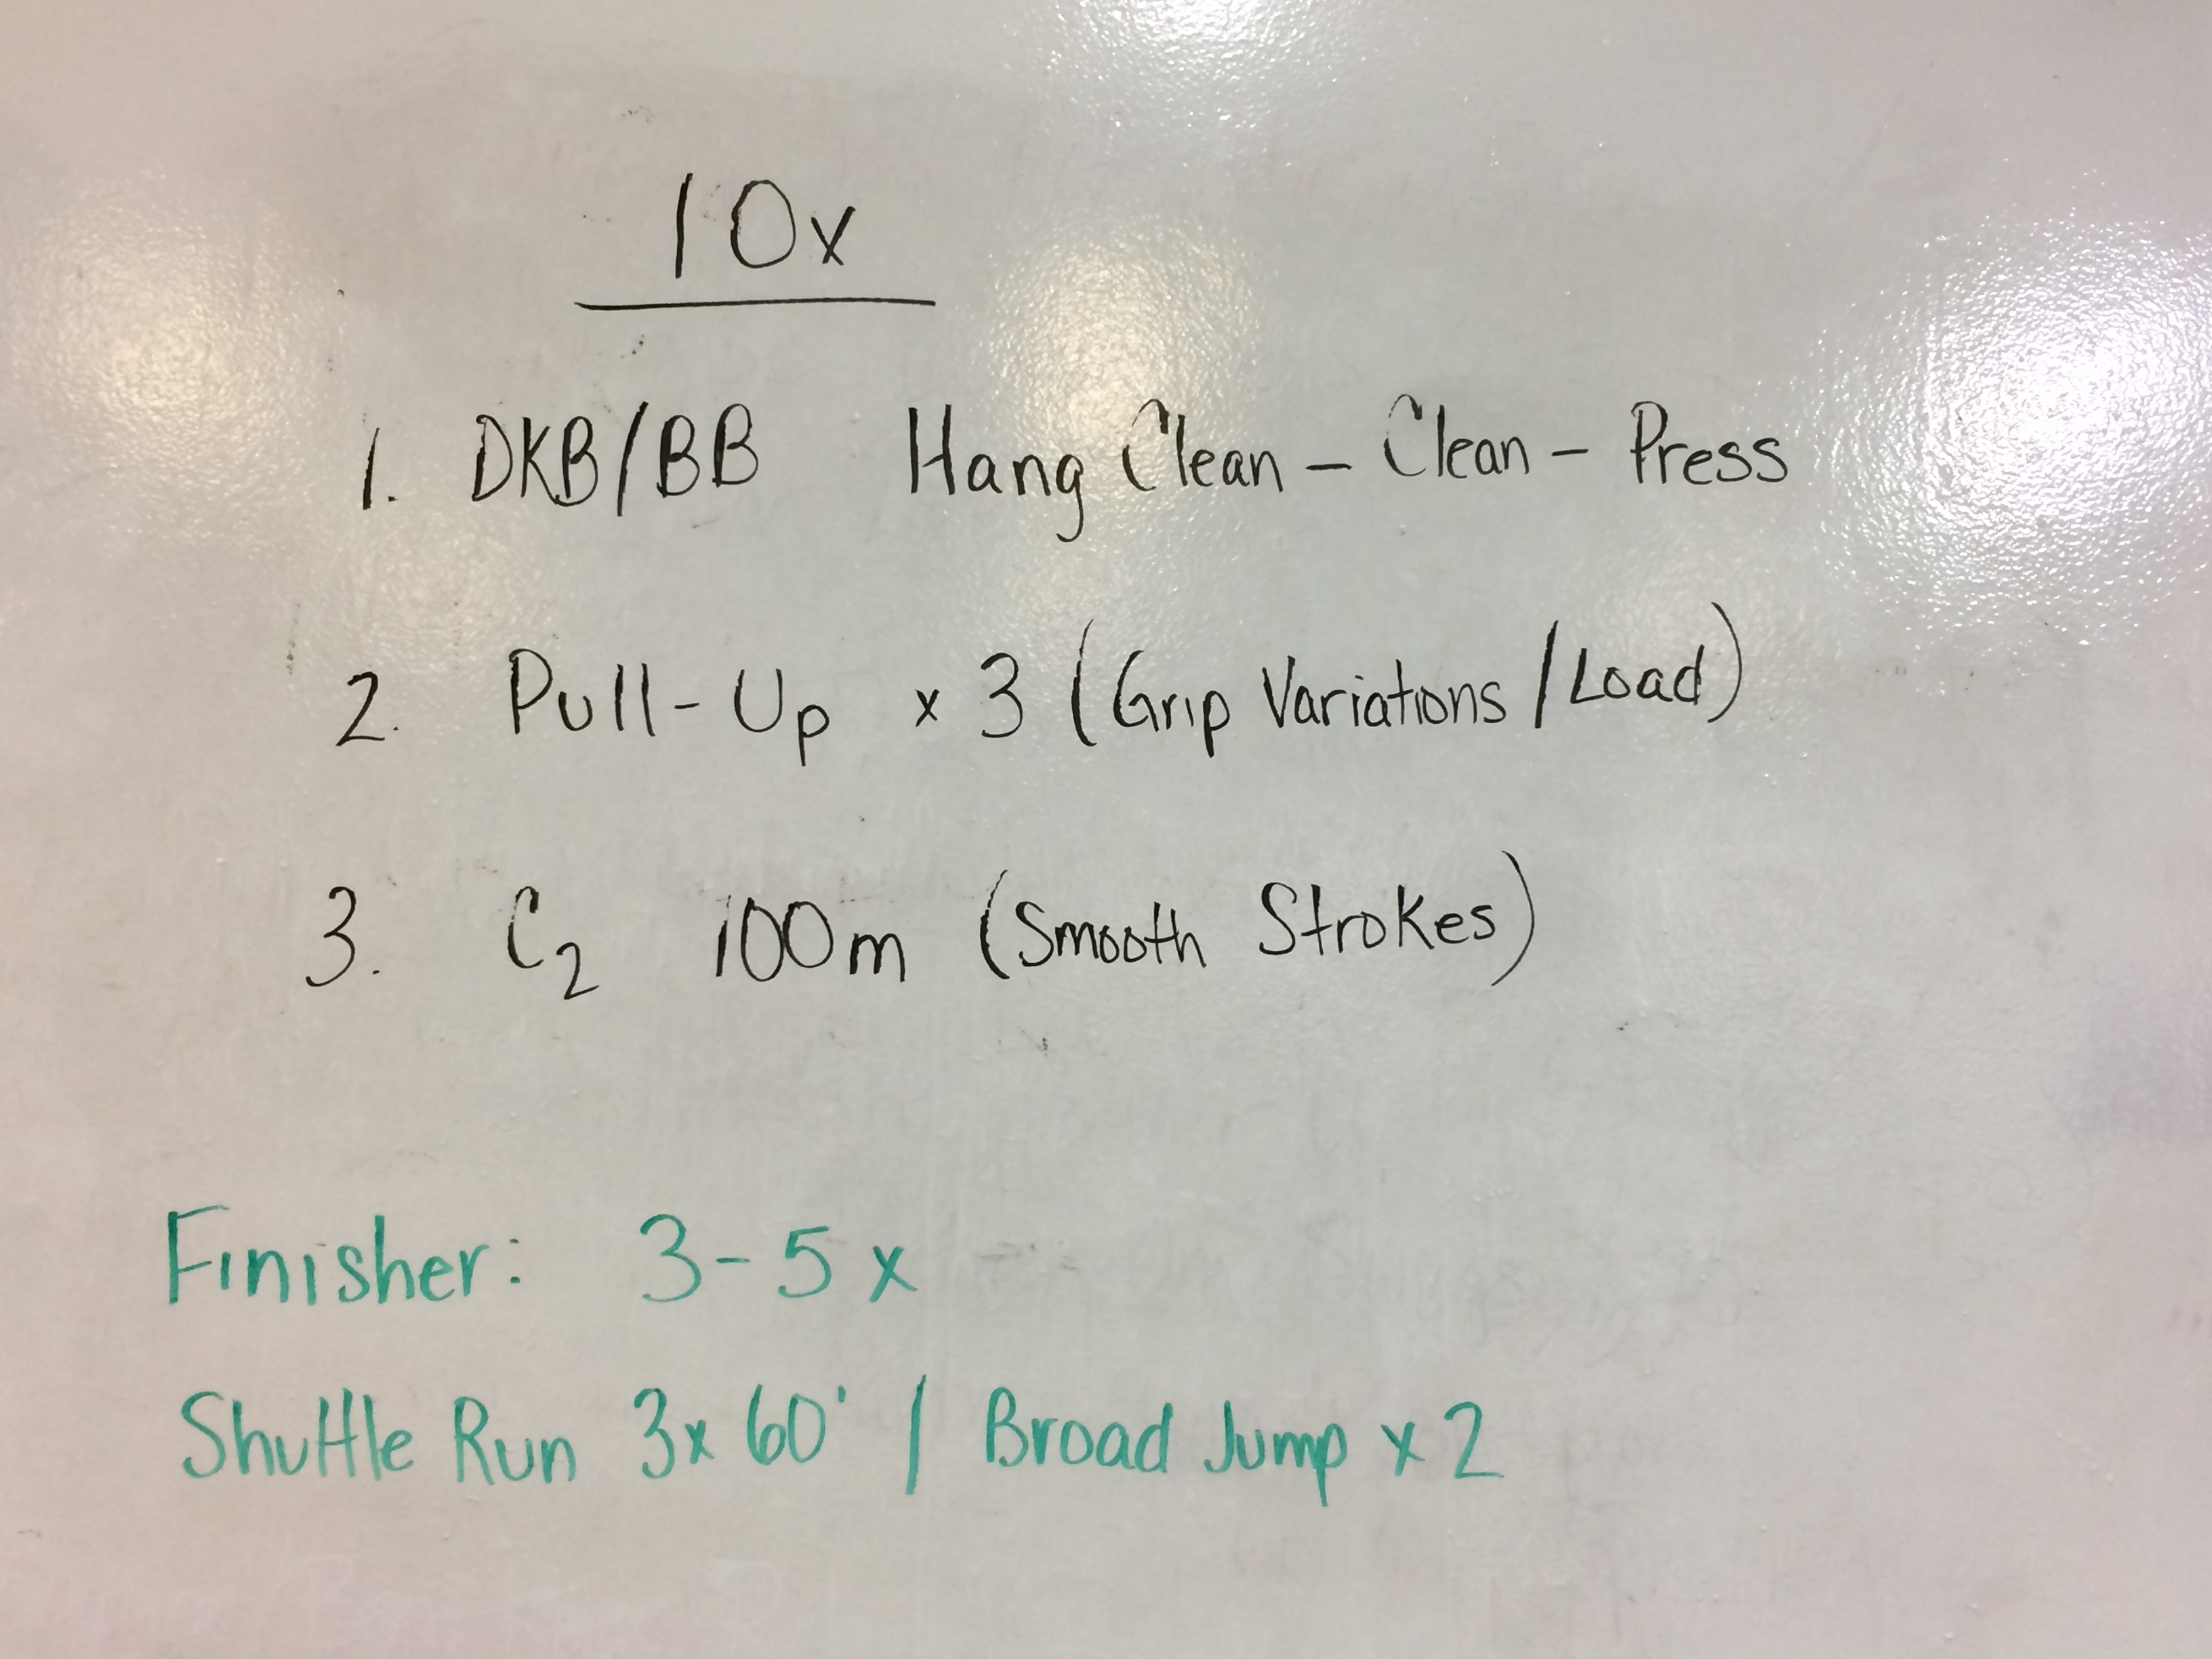 10x
1. DKB/BB Hang Clean - Clean - Press
2. Pull-Up x 3 (Grip Variations / Load)
3. C2 100m (Smooth Strokes)
Finisher: 3-5x
Shuttle Run 3x60' / Broad Jump x 2